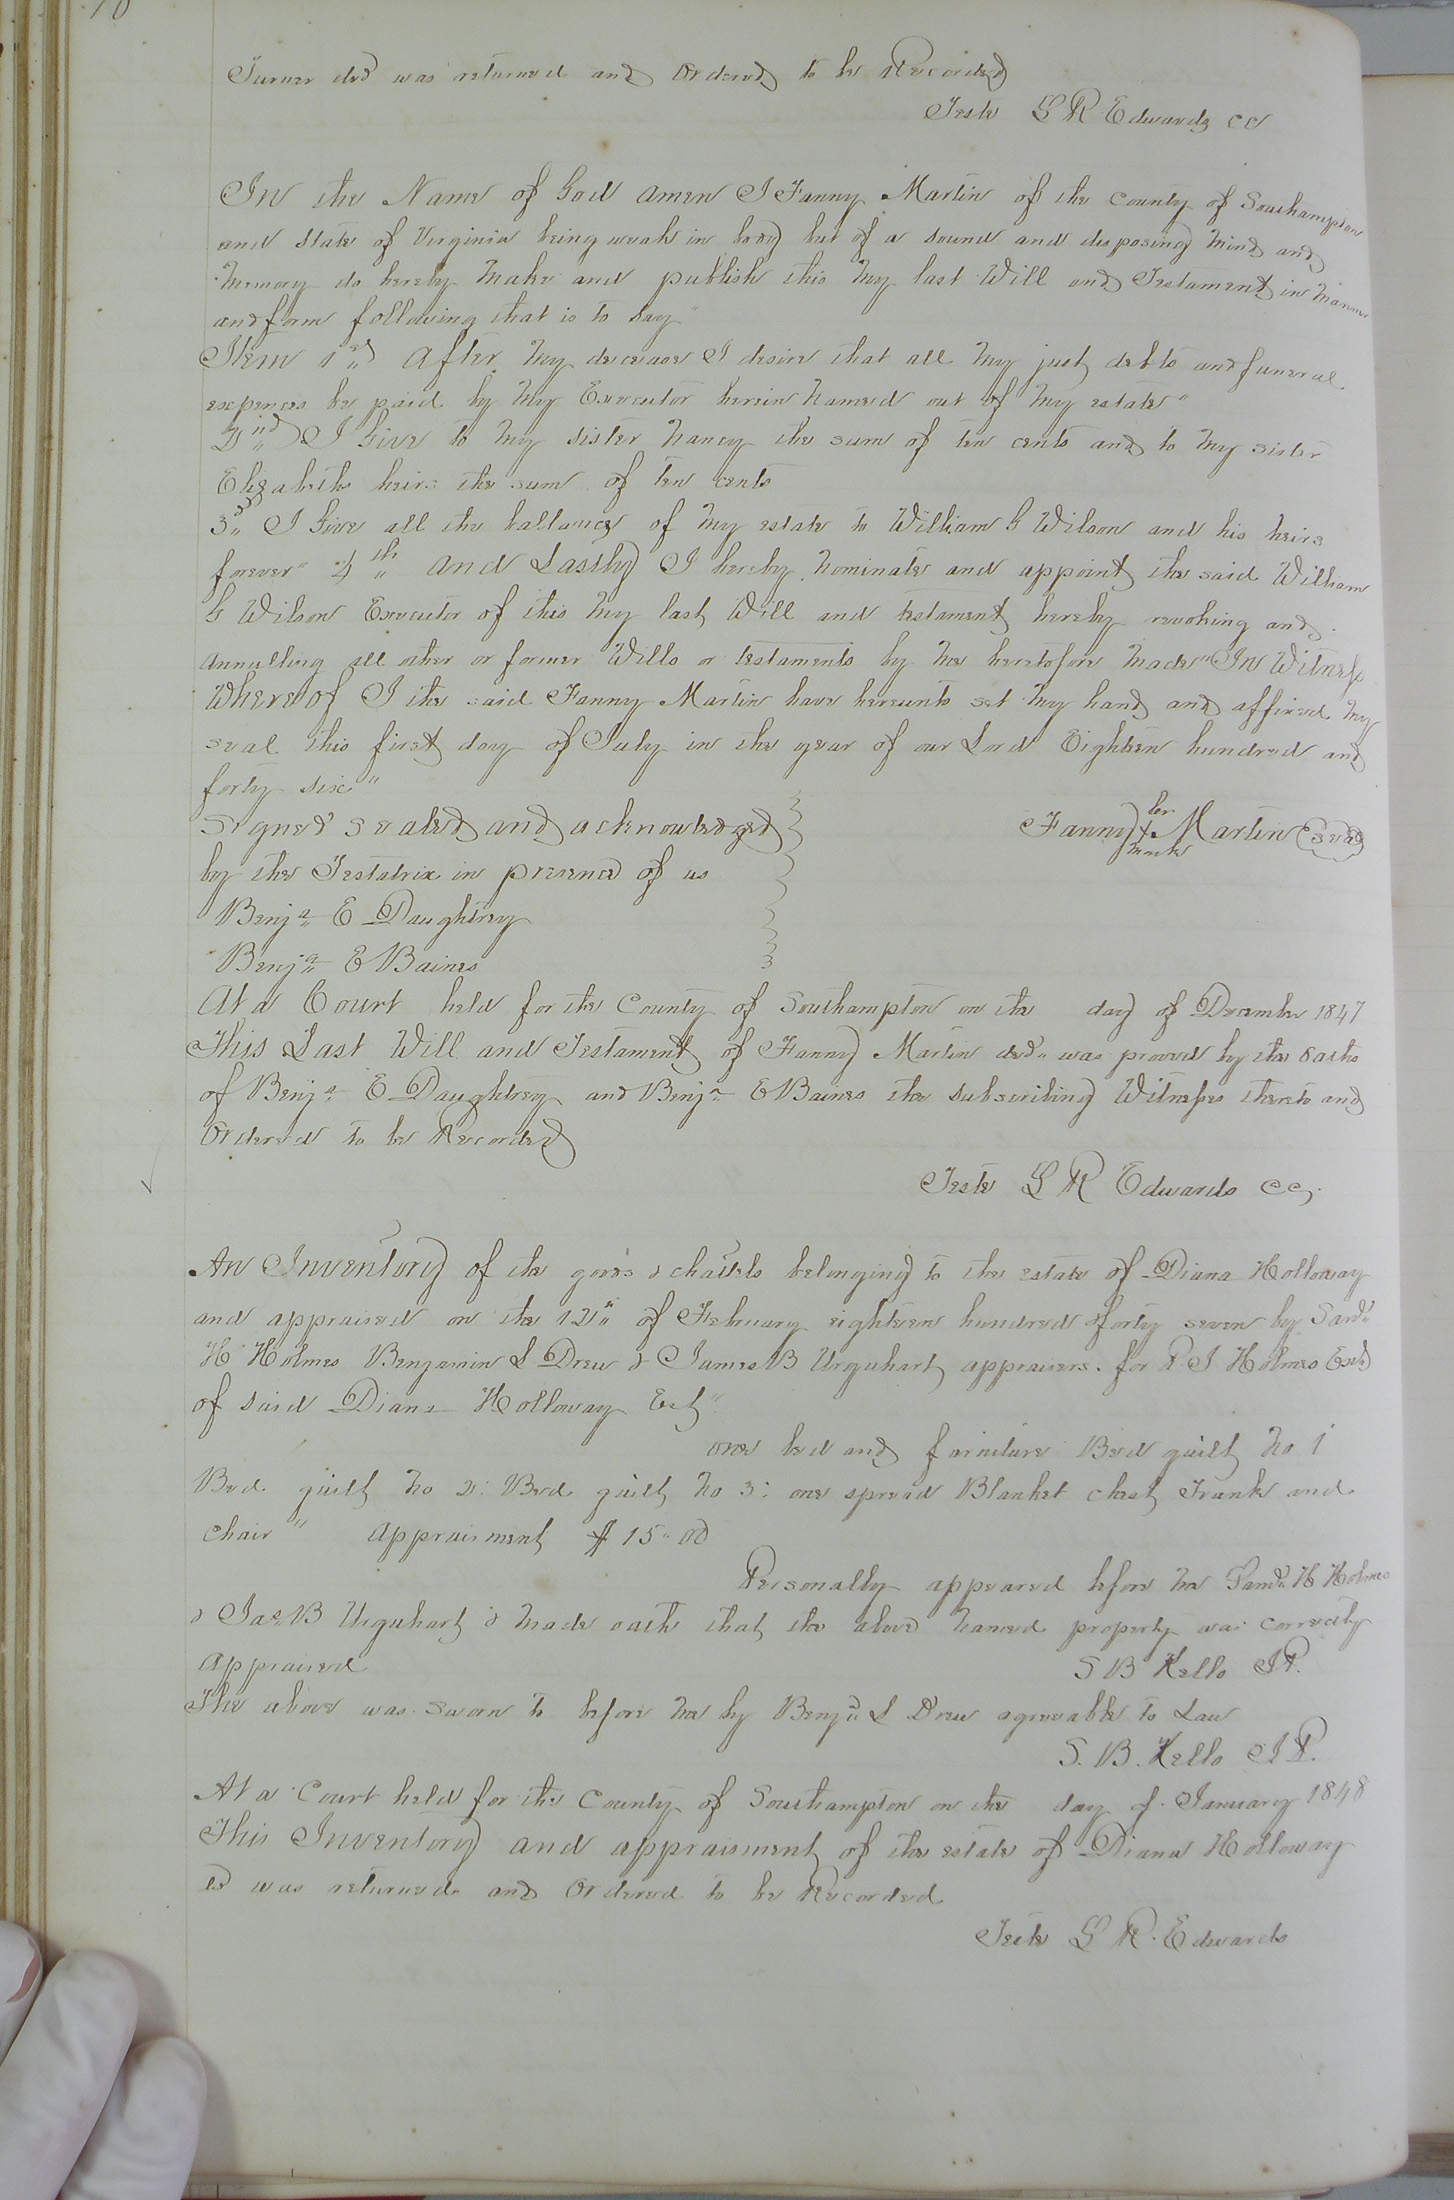 Turner decd was returned and Ordered to be Recorded
Teste L R Edwards CC
In the Name of God Amen I Fanny Martin of the County of Southampton
and State of Virginia being weak in body but of a sound and disposing mind and
memory do hereby make and publish this my last Will and Testament in manner
and form following that is to say
Item 1st After my decease I desire that all my just debts and funeral
expences be paid by my Executor herein named out of my estate"
2nd I Give to my sister Nancy the sum of ten cents and to my sister
Elizabeths heirs the sum of ten cents
3d I Give all the ballance of my estate to William G Wilson and his heirs
forever" 4th And Lastly I hereby nominate and appoint the said William
G Wilson Executor of this my last Will and testament hereby revoking and
annulling all other or former Wills or testaments by me heretofore made" In Witness
Whereof I the said Fanny Martin have hereunto set my hand and affixed my
seal this first day of July in the year of our Lord Eighteen hundred and
forty six"
Signed sealed and acknowledged
by the Testatrix in presence of us
her
Fanny X Martin Seal
mark
Benja E Daughtrey
Benja E Baines
At a Court held for the County of Southampton on the day of December 1847
This Last Will and Testament of Fanny Martin decd was proved by the oaths
of Benja E Daughtrey and Benja E Baines the subscribing Witnesses thereto and
Ordered to be Recorded
Teste L R Edwards CC
An Inventory of the goods & chattels belonging to the estate of Diana Holloway
and appraised on the 12" of February eighteen hundred & forty seven by Saml
H Holmes Benjamin L Drew & James B Urquhart appraisers for R J Holmes Exr
of said Diana Holloway
one bed and furniture Bed quilt No 1
Bed quilt No 2: Bed quilt No 3: one spread Blanket chest Trunk and
chair" Appraisment $15.00
Personally appeared before me Saml H Holmes
& Jas B Urquhart & made oath that the above named property was correctly
appraised
S B Kello JP.
The above was sworn to before me by Benja L Drew agreeable to Law
S. B. Kello JP.
At a Court held for the County of Southampton on the day of January 1848
This Inventory and appraisment of the estate of Diana Holloway
was returned and Ordered to be Recorded
Teste L R. Edwards